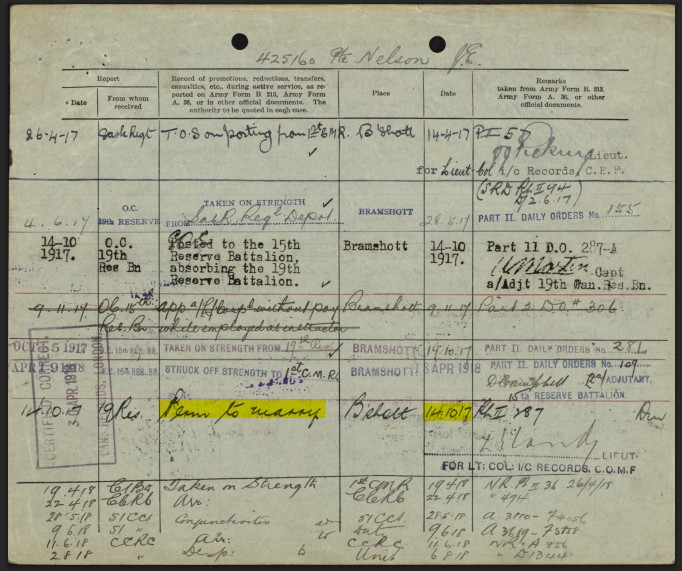 425160 Pte Nelson J.E.
Report
Record of promotions, reductions, transfers,
casualties, etc., during active service, as re-
ported on Army Form B. 213, Army Form
A. 36, or in other official documents. The
authority to be quoted in each case.
Place
Date
Remarks
taken from Army Form B. 213,
Army Form A. 36, or other
official documents.
Date
From whom
received
26-4-17 Sask Regt T.O.S on posting from 1st C.M.R. B'Shott 14-4-17 Pt II 57
Lieut.
for Lieut Col i/c Records C.E.F.
(SRD Pt II 94
D/ 2.6.17)
4.6.17 O.C. 19th RESERVE TAKEN ON STRENGTH FROM Sask Regt Depot BRAMSHOTT 28.5.17 PART II. DAILY ORDERS No. 155
14-10 1917. O.C. 19th Res Bn Posted to the 15th Reserve Battalion, absorbing the 19th Reserve Battalion. Bramshott 14-10 1917. Part 11 D.O. 287-A
Capt
a/Adjt 19th Can.Res.Bn.
9.11.17 OC 15th Res. Bn. App a/L/Corpl without pay while employed as instructor Bramshott 9.11.17 Part 2 D.O. 306
OCT 15 1917 O.C. 15th RES. BN. TAKEN ON STRENGTH FROM 19th Res. BRAMSHOTT 14.10.17 PART II. DAILY ORDERS No. 281
APL 9 1918 STRUCK OFF STRENGTH TO 1st C.M.R. BRAMSHOTT APR 1918 PART II. DAILY ORDERS No. 109
ADJUTANT,
15th RESERVE BATTALION.
CERTIFIED CORRECT
APR 1918
LONDON
14.10.17 19 Res. Perm to marry B'shott 14.10.17 Pt II 287
LIEUT
FOR LT: COL: I/C RECORDS, C.O.M.F
19.4.18 Taken on Strength 1st CMR 19.4.18 NR Pt II 36 26/4/18
22.4.18 CCRC Arr: CCRC 22.4.18 " 494
28.5.18 51 CCS Conjunctivitis 51 CCS 28.5.18
9.6.18 51 " 9.6.18
11.6.18 CCRC Arr: CCRC 11.6.18
2.8.18 " Desp: Unit 6.8.18